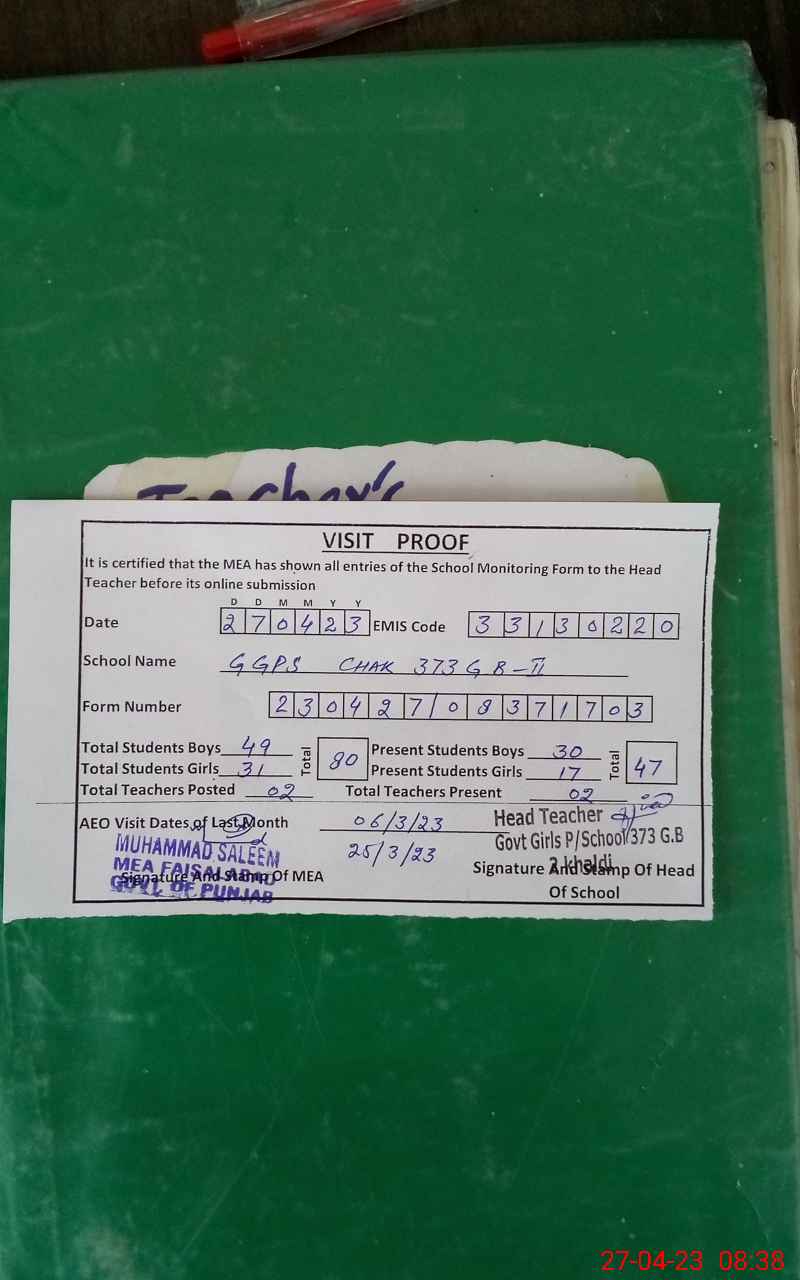 Teacher's
VISIT PROOF
It is certified that the MEA has shown all entries of the School Monitoring Form to the Head
Teacher before its online submission
D D M M Y Y
Date 2 7 0 4 2 3 EMIS Code 3 3 1 3 0 2 2 0
School Name GGPS CHAK 373 G B - II
Form Number 2 3 0 4 2 7 1 0 8 3 7 1 7 0 3
Total Students Boys 49 Total 80 Present Students Boys 30 Total 47
Total Students Girls 31 Present Students Girls 17
Total Teachers Posted 02 Total Teachers Present 02
AEO Visit Dates of Last Month 06/3/23 Head Teacher
MUHAMMAD SALEEM 25/3/23 Govt Girls P/School/373 G.B
MEA FAISALABAD 2 khaldi
Signature And Stamp Of MEA Signature And Stamp Of Head
GOVT. OF PUNJAB Of School
27-04-23 08:38